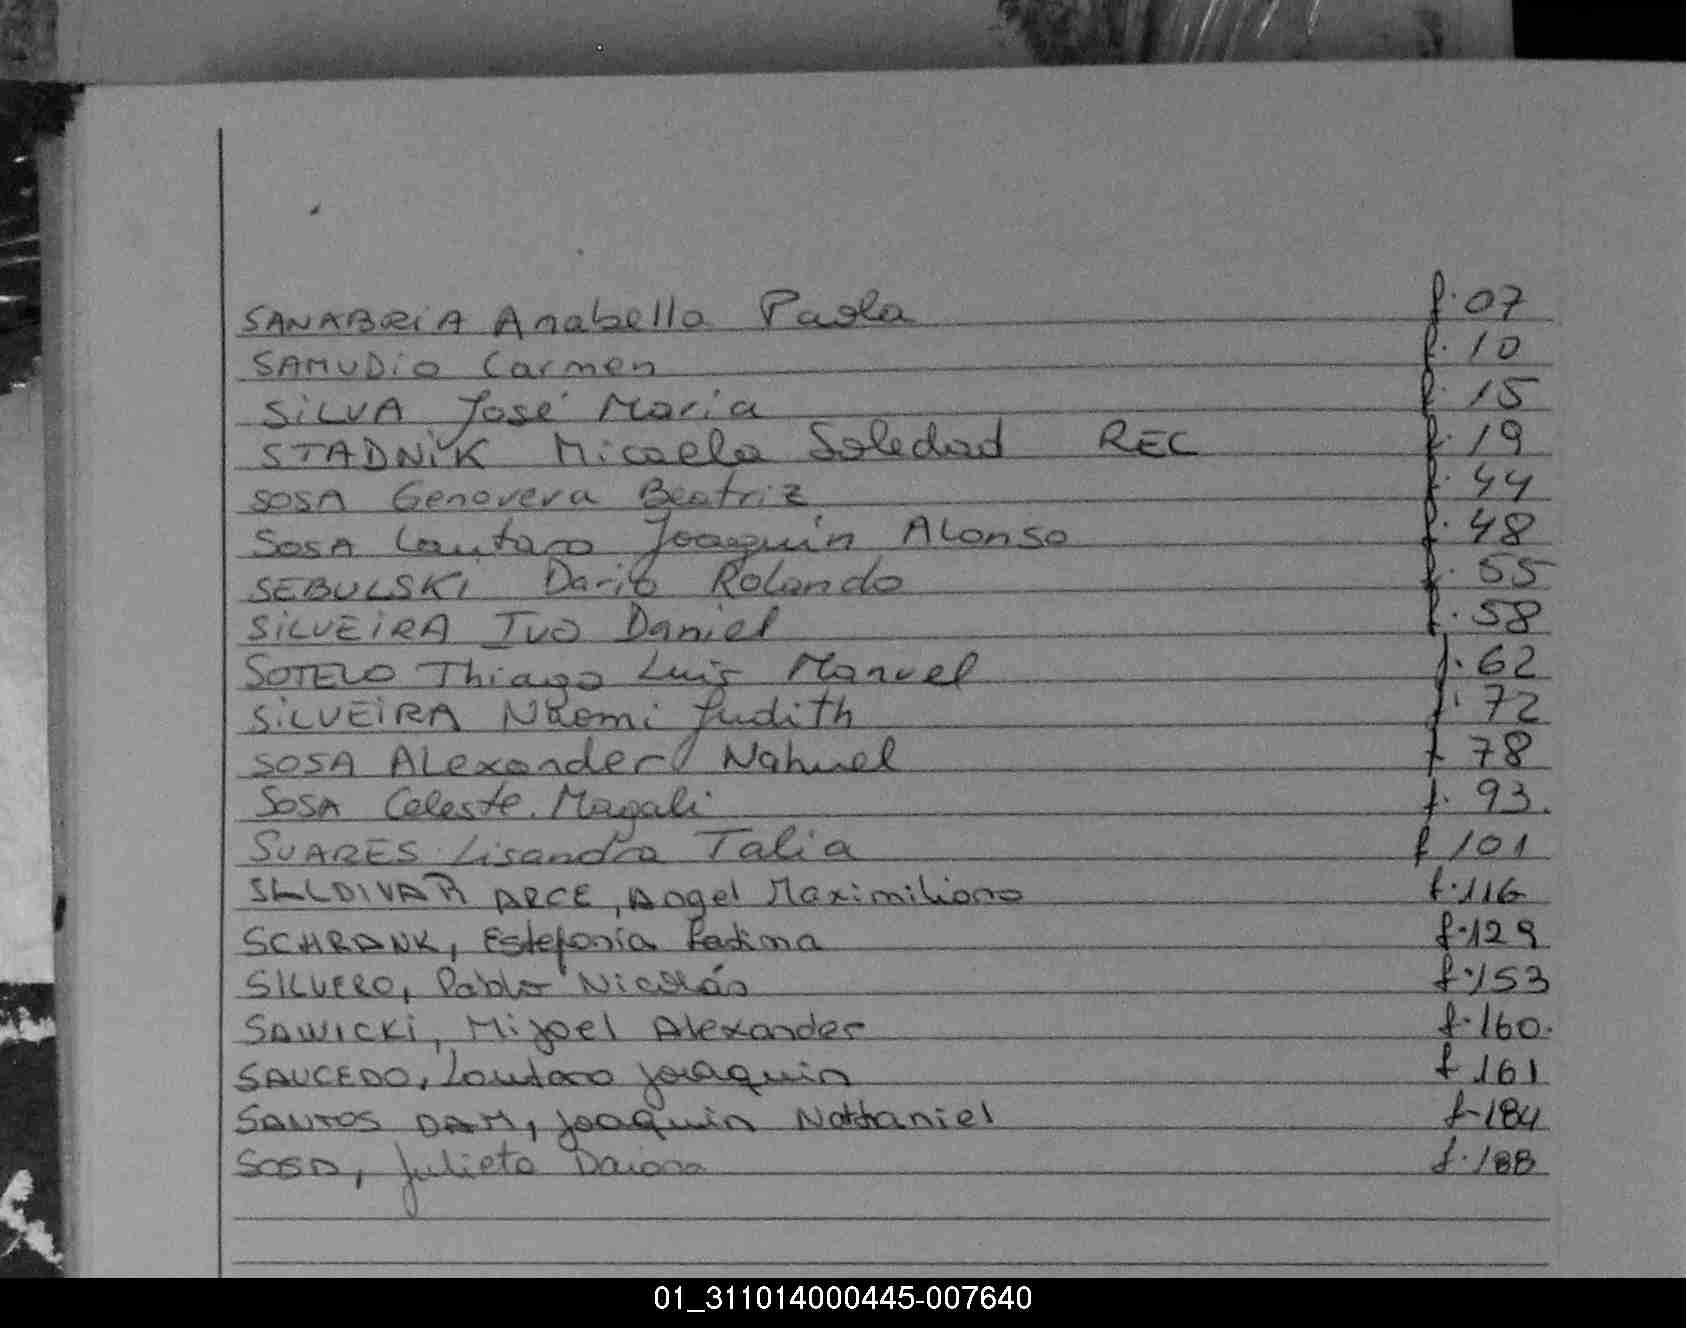 SANABRIA Anabella Paola f. 07
SAMUDIO Carmen f. 10
SILVA José Maria f. 15
STADNIK Micaela Soledad REC f. 19
SOSA Genoveva Beatriz f. 44
SOSA Lautaro Joaquin Alonso f. 48
SEBULSKI Dario Rolando f. 55
SILVEIRA Ivo Daniel f. 58
SOTELO Thiago Luis Manuel f. 62
SILVEIRA Naomi Judith f. 72
SOSA Alexander Nahuel f 78
SOSA Celeste. Magali f. 93.
SUARES Lisandra Talia f 101
ARCE, Angel Maximiliano f. 116
SCHRANK, Estefanía Fatima f. 129
SILVERO, Pablo Nicolás f. 153
SAWICKI, Mijael Alexander f. 160.
SAUCEDO, Lautaro Joaquin f 161
SANTOS DAM, Joaquin Nathaniel f-184
SOSA, Julieta Daiana f. 188
01_311014000445-007640